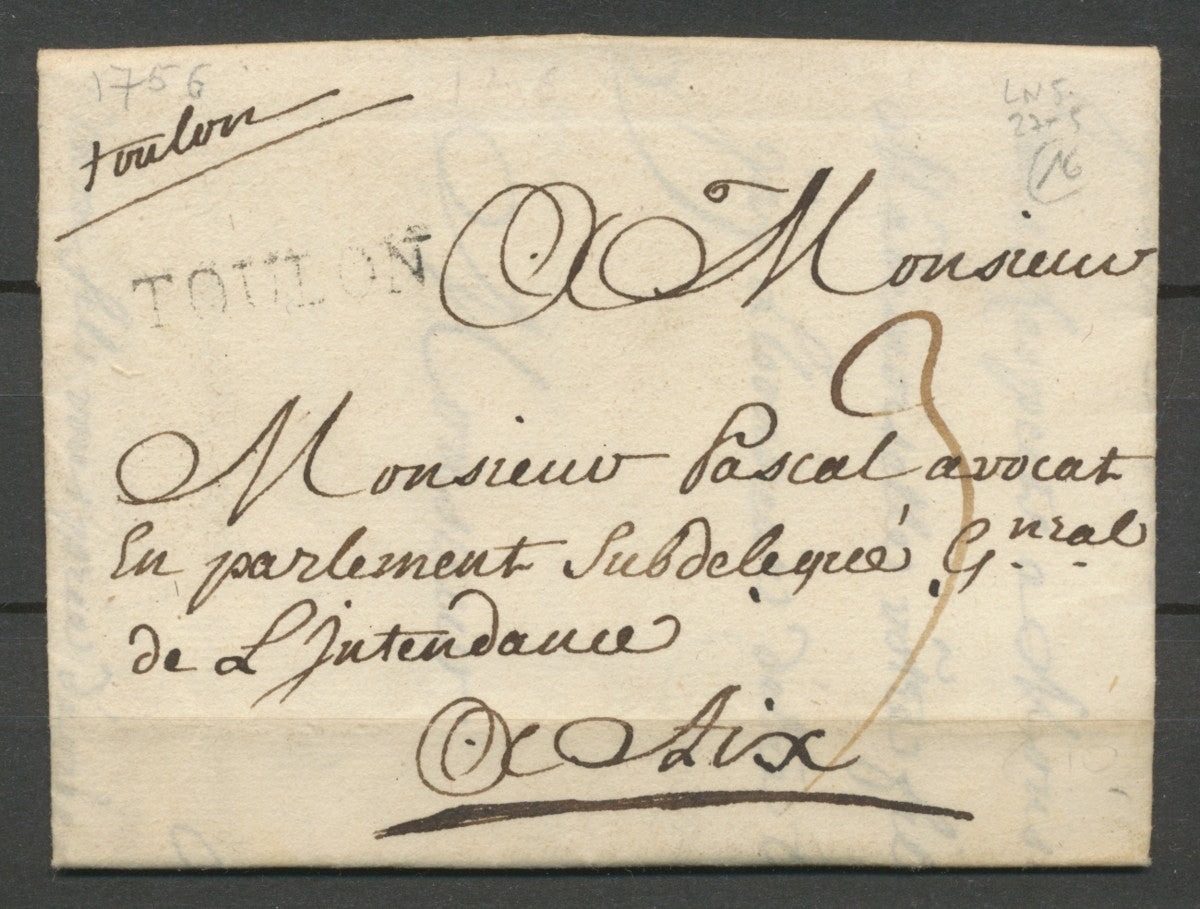 1756
toulon
LN 5.
22-5
16
TOULON
A Monsieur
3
Monsieur Pascal avocat
En parlement Subdelegué G.nral
de L'Intendance
A Aix